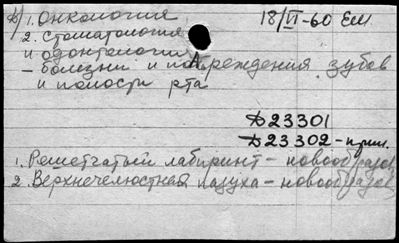 Д/ 1. Онкология 18/VI-60 Ем
2. Стоматология
и одонтология
- болезни и повреждения зубов
и полости рта
Д23301
Д23302-прил.
1. Решетчатый лабиринт - новообразов.
2. Верхнечелюстная пазуха - новообразов.